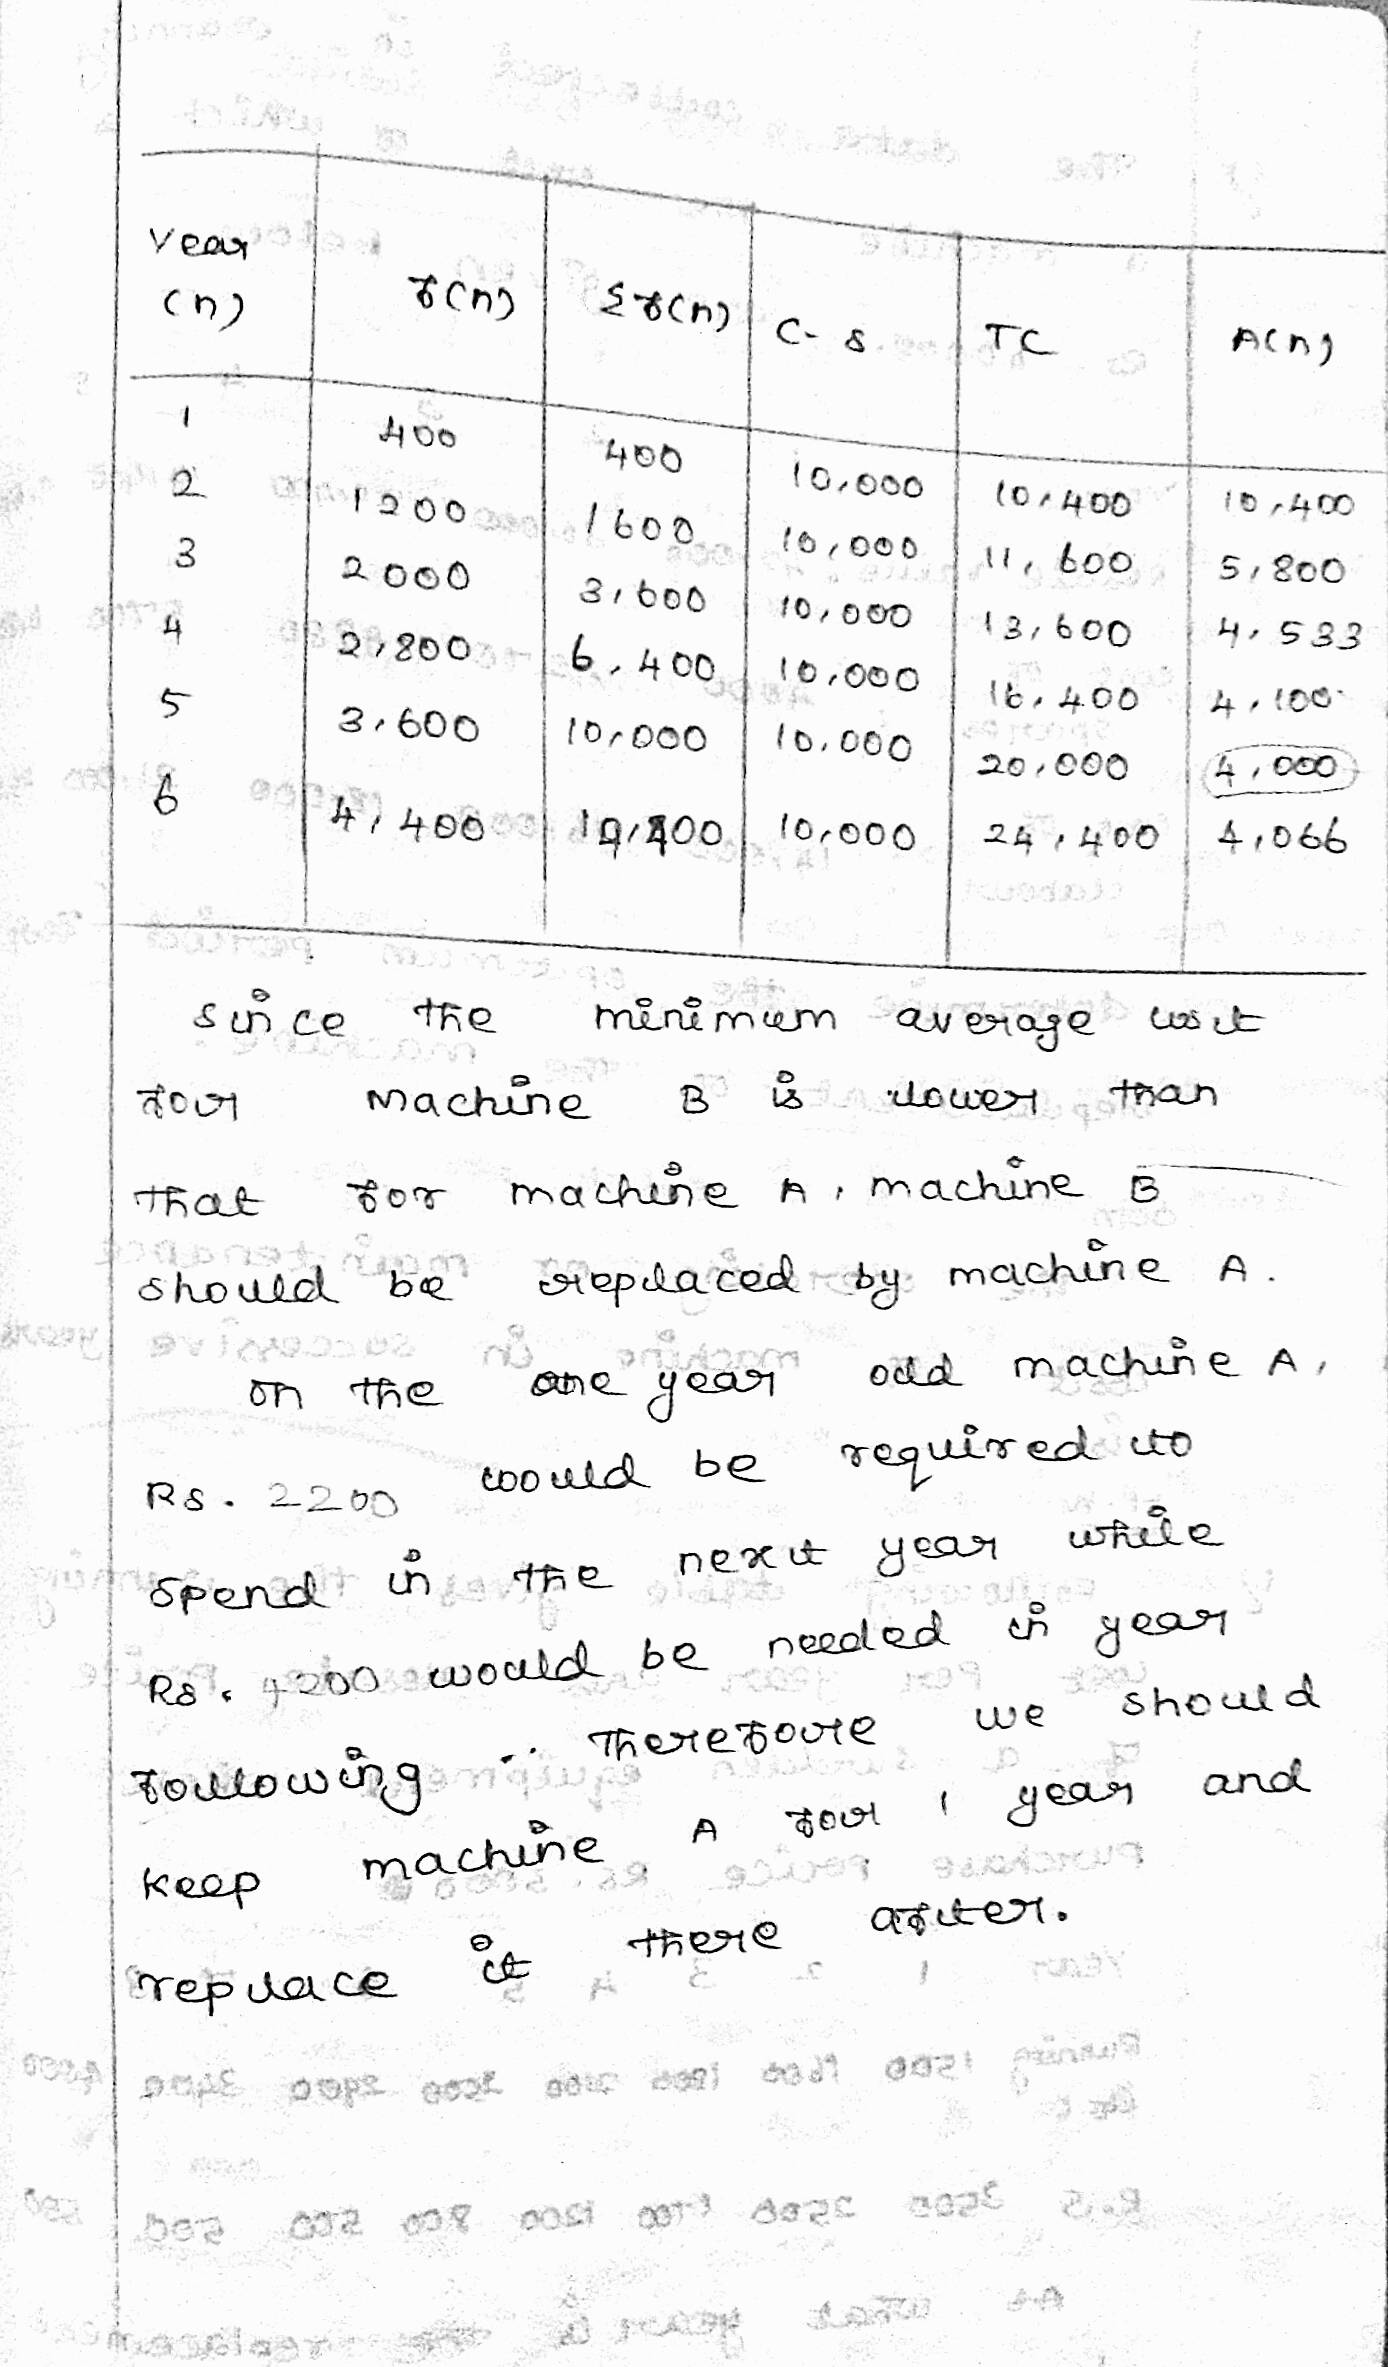 Year (n) f(n) Σf(n) C-s TC A(n)
1 400 400 10,000 10,400 10,400
2 1200 1600 10,000 11,600 5,800
3 2000 3,600 10,000 13,600 4,533
4 2,800 6,400 10,000 16,400 4,100
5 3,600 10,000 10,000 20,000 4,000
6 4,400 10,000 24,400 4,066
since the minimum average cost
for machine B is lower than
that for machine A, machine B
should be replaced by machine A.
on the one year old machine A,
Rs. 2200 would be required to
spend in the next year while
Rs. 4200 would be needed in year
following .. Therefore we should
keep machine A for 1 year and
replace it there after.